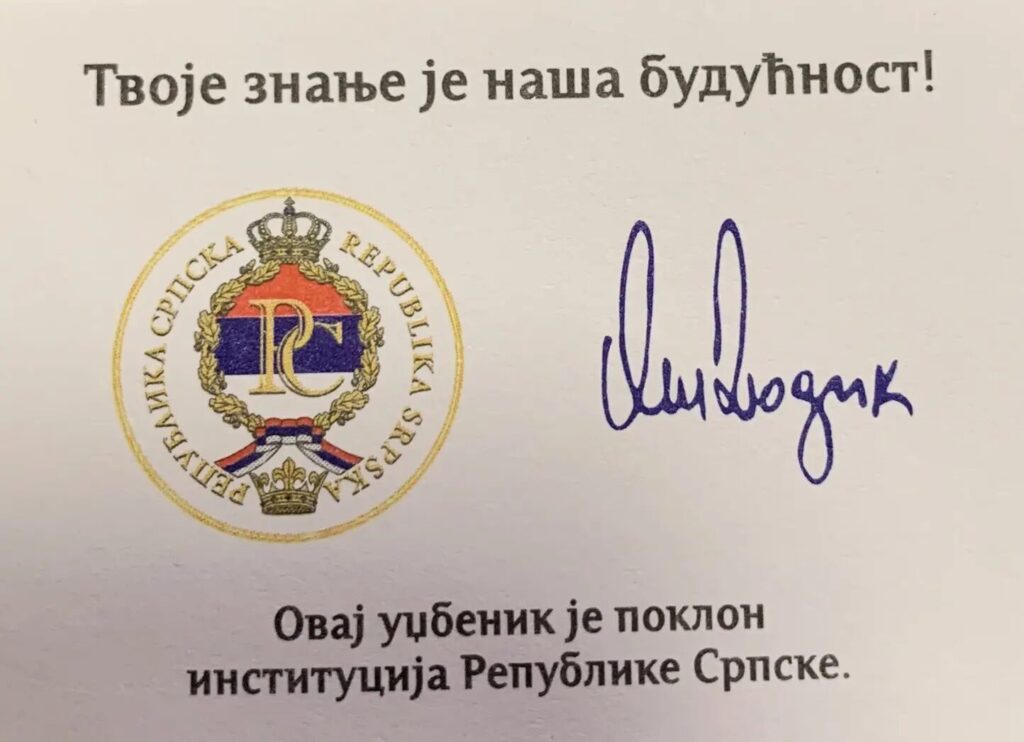 Твоје знање је наша будућност!
РЕПУБЛИКА СРПСКА
REPUBLIKA SRPSKA
РС
Додик
Овај уџбеник је поклон
институција Републике Српске.